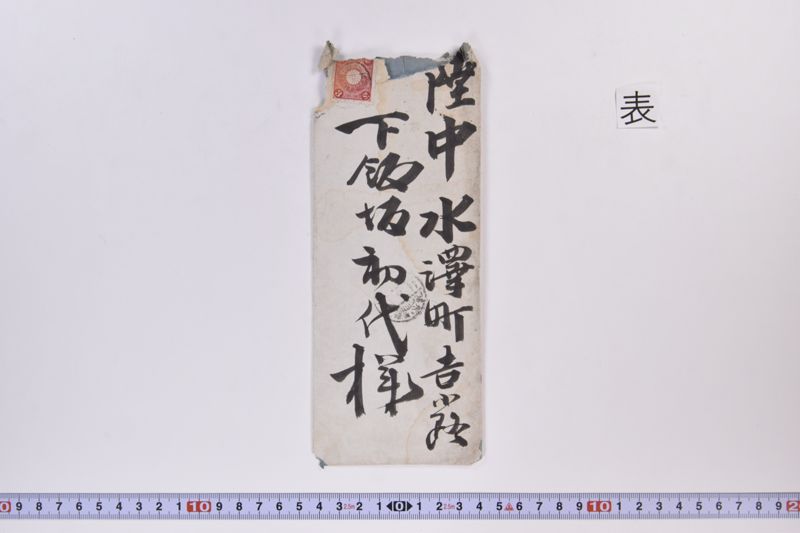 陸中水澤町吉小路
下飯坂初代様
表
0 9 8 7 6 5 4 3 2 1 10 9 8 7 6 5 4 3 2.5m 2 1 0 1 2 2.5m 3 4 5 6 7 8 9 10 1 2 3 4 5 6 7 8 9 2